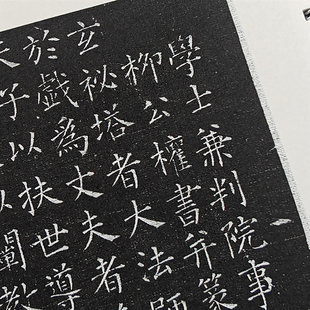 學士兼判院事
柳公權書并篆
玄祕塔者大法師
於戲爲丈夫者
天子以扶世導
以闡教